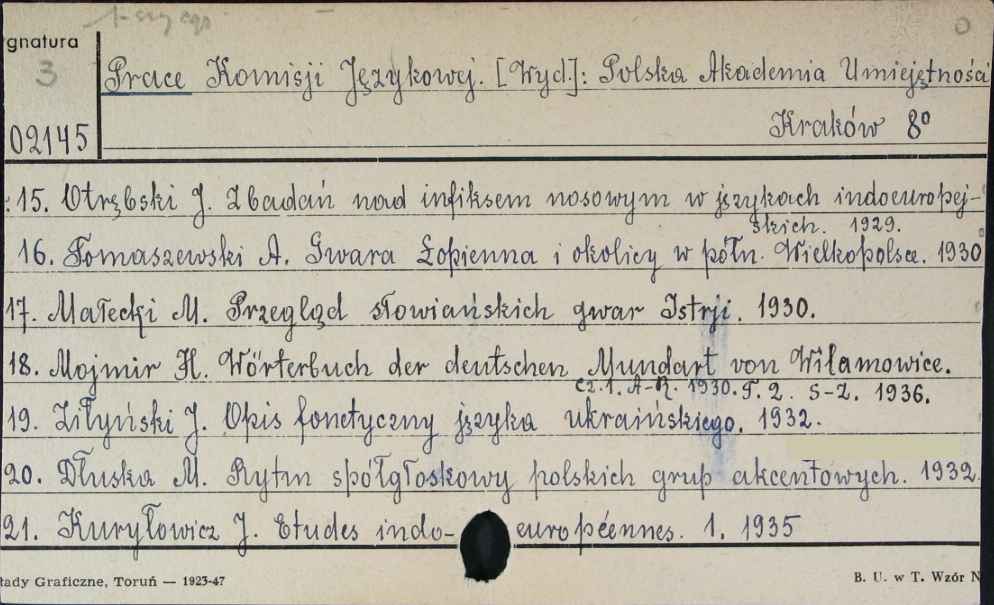 gnatura
3
02145
Prace Komisji Językowej. [Wyd.]: Polska Akademia Umiejętności
Kraków 8º
15. Otrębski J. Z badań nad infiksem nosowym w językach indoeuropej-
skich. 1929.
16. Tomaszewski A. Gwara Łopienna i okolicy w półn. Wielkopolsce. 1930
17. Małecki M. Przegląd słowiańskich gwar Istrji. 1930.
18. Mojmir H. Wörterbuch der deutschen Mundart von Wilamowice.
cz. 1. A-R. 1930. T. 2. S-Z. 1936.
19. Ziłyński J. Opis fonetyczny języka ukraińskiego. 1932.
20. Dłuska M. Rytm spółgłoskowy polskich grup akcentowych. 1932.
21. Kuryłowicz J. Etudes indo-européennes. 1. 1935
łady Graficzne, Toruń — 1923-47
B. U. w T. Wzór N